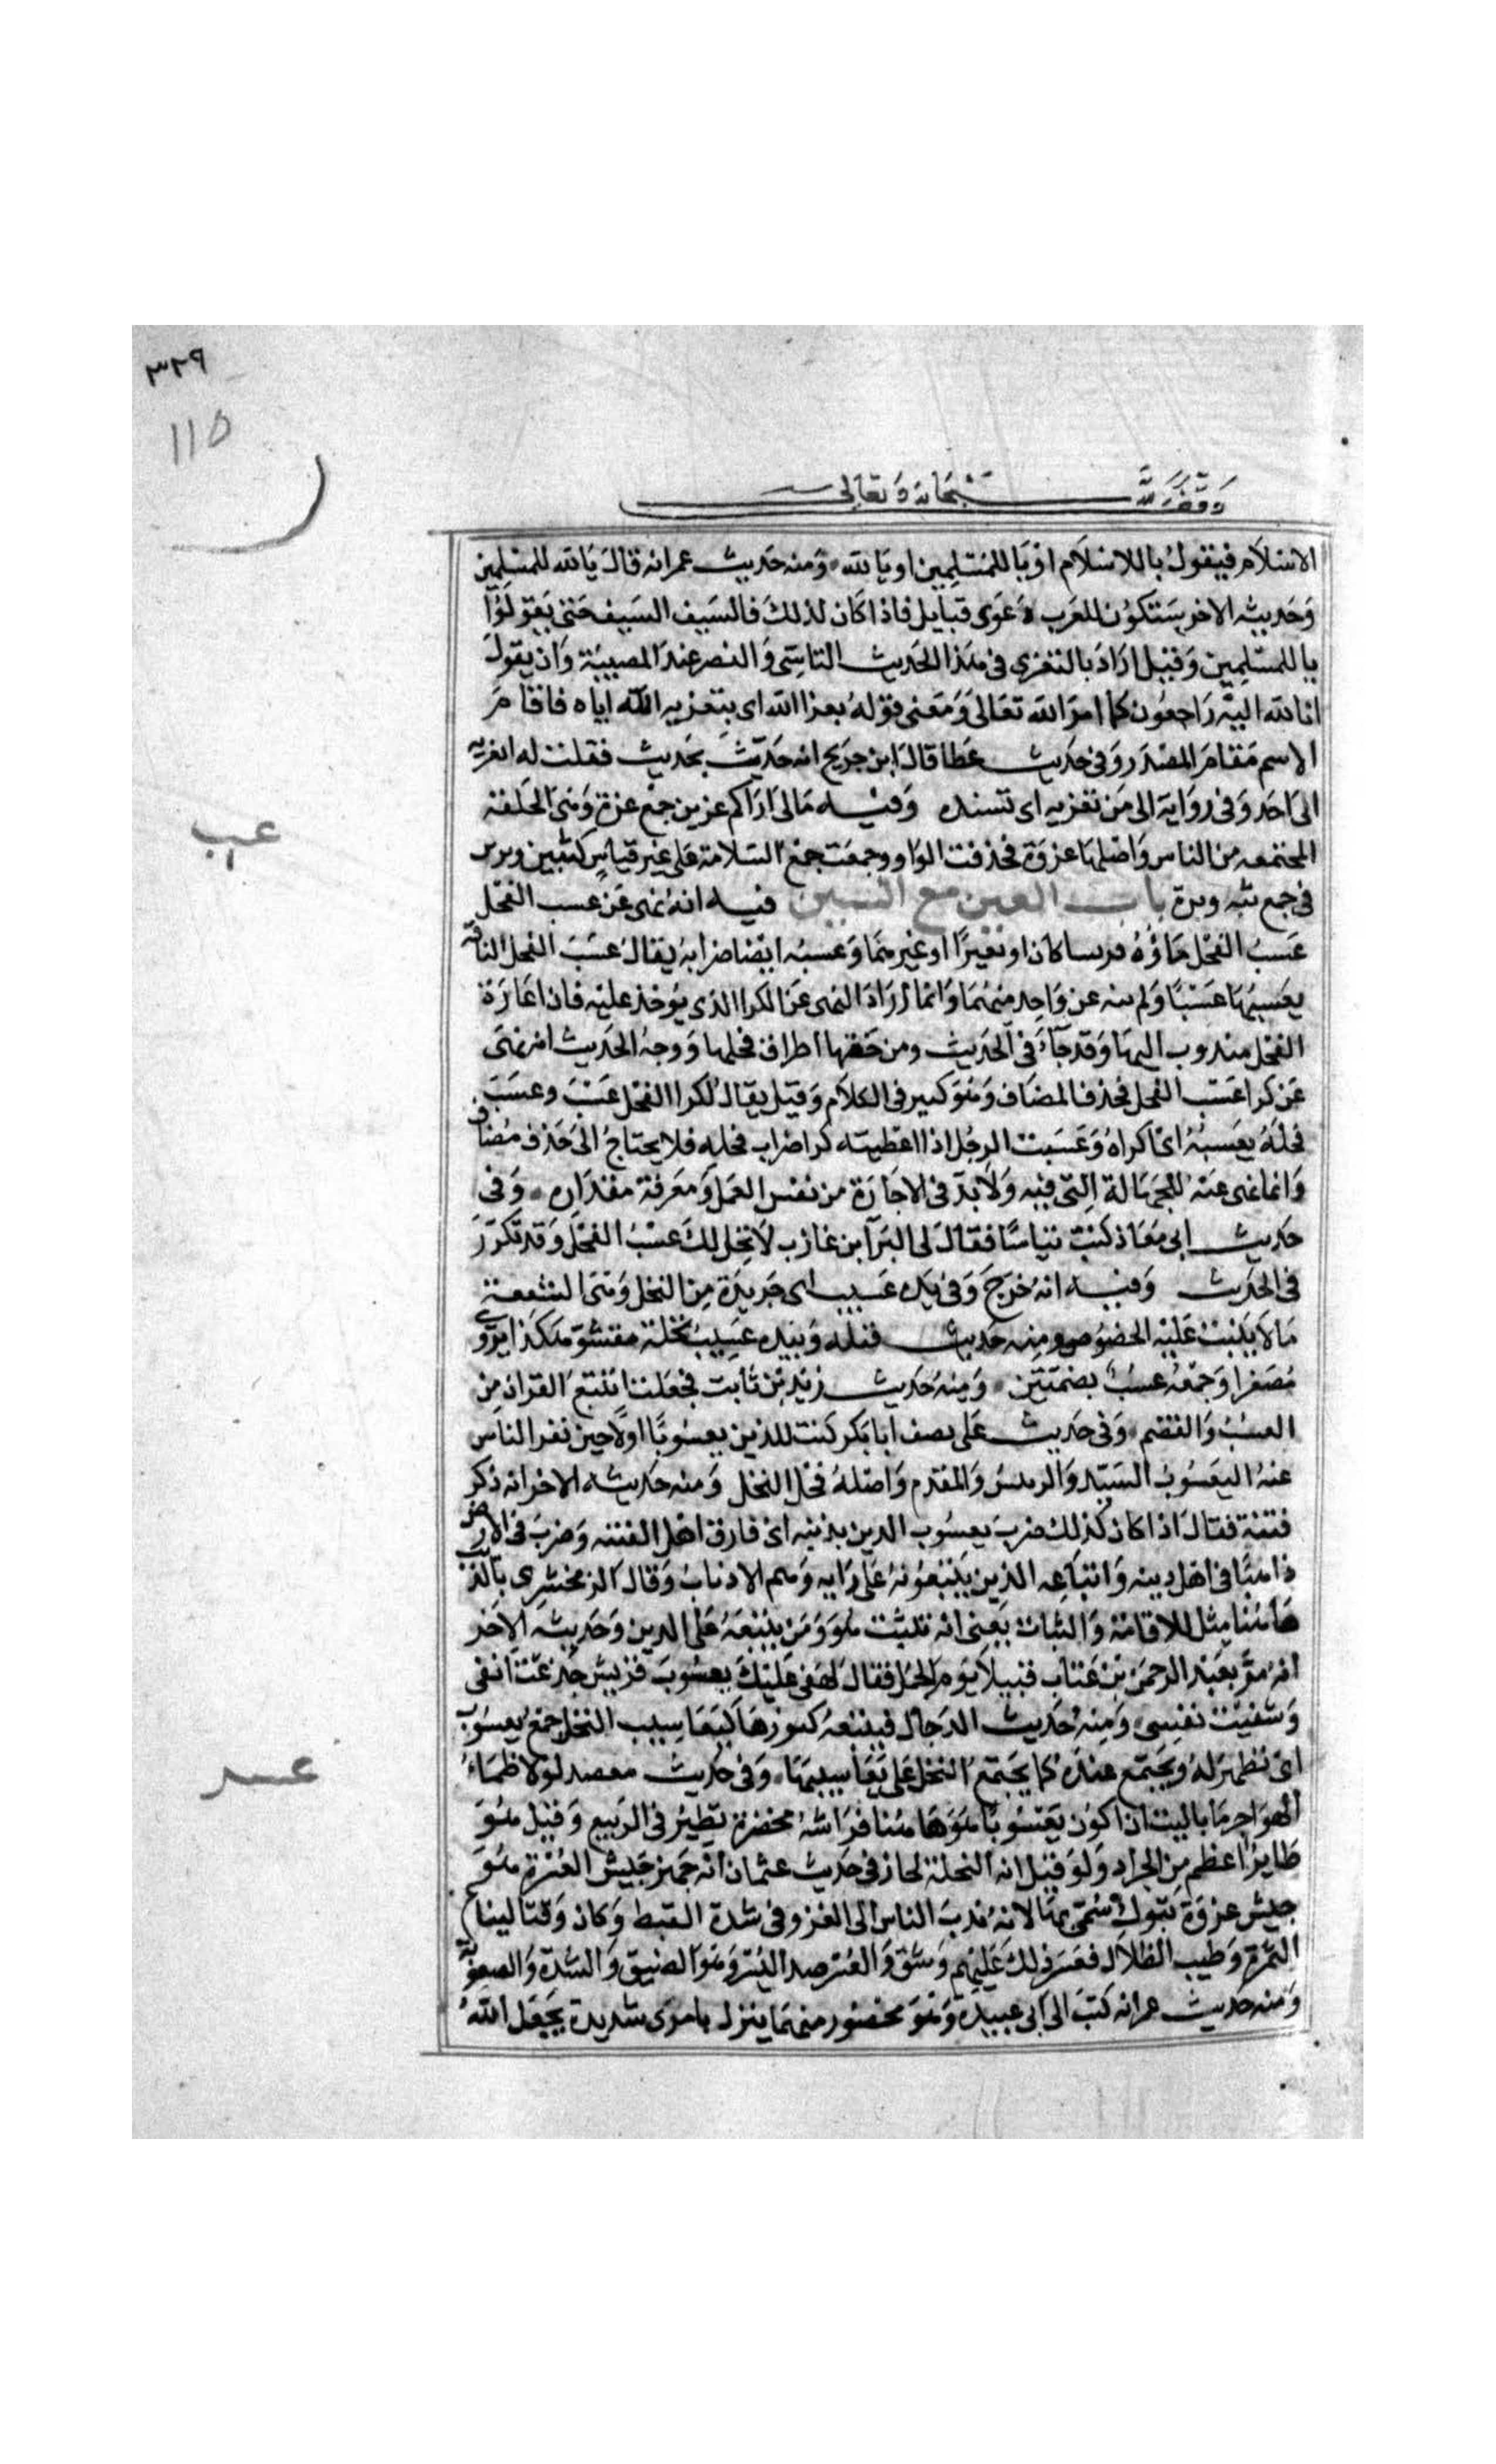 ٣٢٩
115
وقف لله سبحانه وتعالى
الاسلام فيقول ياللاسلام او ياللمسلمين او يالله ومنه حديث عمر انه قال يالله للمسلمين
وحديثه الاخر ستكون للعرب دعوى قبايل فاذا كان لذلك فالسيف السيف حتى يقولوا
ياللمسلمين وقيل اراد بالتعزى فى هذا الحديث التاسى والتصبر عند المصيبة وان يقول
انا لله اليه راجعون كما امر الله تعالى ومعنى قوله بعزا الله اى بتعزيه الله اياه فاقام
الاسم مقام المصدر وفى حديث عطا قال ابن جريج انه حدث بحديث فقلت له اتعزيه
الى احد وفى رواية الى من تعزيه اى تسنده وفيه مالى اراكم عزين جمع عزة وهى الحلقة
المجتمعه من الناس واصلها عزوة فحذفت الواو وجمعت جمع السلامة على غير قياس كثبين وبرين
فى جمع ثبه وبرة باب العين مع السين فيه انه نهى عن عسب الفحل
عسب الفحل ماؤه فرسا كان او بعيرا او غيرهما وعسبه ايضا ضرابه يقال عسب الفحل الناقه
يعسبها عسبا ولم ينه عن واحد منهما وانما اراد النهى عن الكرا الذى يؤخذ عليه فان اعارة
الفحل مندوب اليها وقد جاء فى الحديث ومن حقها اطراق فحلها ووجه الحديث انه نهى
عن كرا عسب الفحل فحذف المضاف وهو كثير فى الكلام وقيل يقال لكرا الفحل عسب وعسب
فحله يعسبه اى اكراه وعسبت الرجل اذا اعطيته كرا ضراب فحله فلا يحتاج الى حذف مضاف
وانما نهى عنه للجهالة التى فيه ولا بد فى الاجارة من نفس العمل ومعرفة مقداره وفى
حديث ابى معاذ كنت تياسا فقال لى البرآ ابن عازب لا يحل لك عسب الفحل وقد تكرر
فى الحديث وفيه انه خرج وفى يده عسيب اى جريدة من النخل وهى السعفة
مالا ينبت عليه الخصوص ومنه حديث قيله وبيده عسيب نخلة مقشو هكذا يروى
مصغرا وجمعه عسب بضمتين ومنه حديث زيد بن ثابت فجعلت اتتبع القران من
العسب والقضم وفى حديث على يصف ابا بكر كنت للدين يعسوبا اولا حين نفر الناس
عنه اليعسوب السيد والرئيس والمقدم واصله فحل النحل ومنه حديثه الاخر انه ذكر
فتنة فقال اذا كان كذلك ضرب يعسوب الدين بذنبه اى فارق اهل الفتنه وضرب فى الارض
ذاهبا فى اهل دينه واتباعه الذين يتبعونه على رايه وهم الاذناب وقال الزمخشرى بالذنب
هاهنا مثل للاقامة والثبات يعنى انه تثبت هو ومن يتبعه على الدين وحديثه الاخر
انه مر بعبد الرحمن بن عتاب قتيلا يوم الجمل فقال لهفى عليك يعسوب قريش جدعت انفى
وشفيت نفسى ومنه حديث الدجال فيتبعه كنوزها كيعاسيب النحل جمع يعسوب
اى تظهر له وتجتمع عنده كما يجتمع النحل على يعاسيبها وفى حديث معضد لولا ظماء
الهواجر ما باليت ان اكون يعسوبا هو هاهنا فراشة مخضرة تطير فى الربيع وقيل هو
طاير اعظم من الجراد ولو قيل انه النحلة لجاز فى حديث عثمان انه جهز جيش العسرة هو
جيش غزوة تبوك سمى بها لانه ندب الناس الى الغزو فى شدة القيظ وكان وقت ايناع
الثمرة وطيب الظلال فعسر ذلك عليهم وشق والعسر ضد اليسر وهو الضيق والشدة والصعوبة
ومنه حديث عمر انه كتب الى ابى عبيدة وهو محصور مهما ينزل بامرى شديدة يجعل الله
عسب
عسر